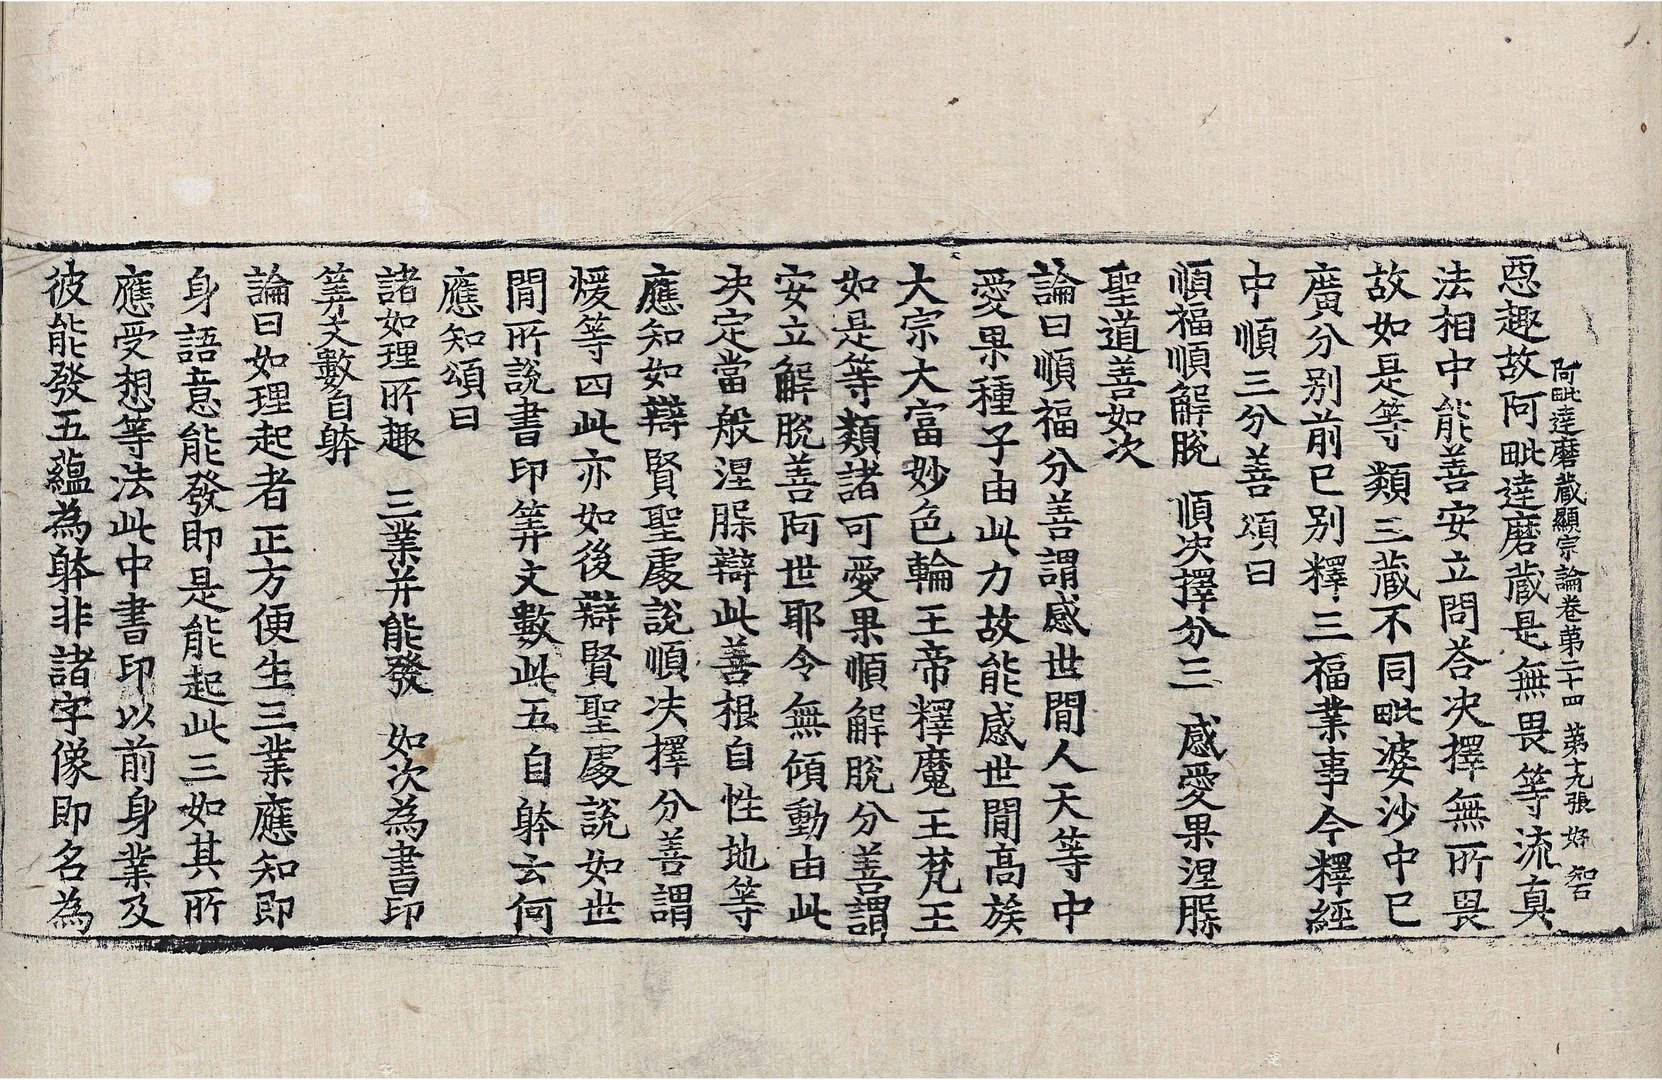 阿毗達磨藏顯宗論卷第二十四 第十九張 好 智
惡趣故阿毗達磨藏是無畏等流真
法相中能善安立問荅决擇無所畏
故如是等類三藏不同毗婆沙中已
廣分别前已别釋三福業事今釋經
中順三分善頌曰
順福順解脫 順决擇分三 感愛果涅脲
聖道善如次
論曰順福分善謂感世閒人天等中
愛果種子由此力故能感世閒高族
大宗大富妙色輪王帝釋魔王梵王
如是等類諸可愛果順解脫分善謂
安立解脫善阿世耶令無傾動由此
决定當般涅脲辯此善根自性地等
應知如辯賢聖處說順决擇分善謂
煖等四此亦如後辯賢聖處說如世
閒所說書印筭文數此五自躰云何
應知頌曰
諸如理所趣 三業并能發 如次為書印
筭文數自躰
論曰如理起者正方便生三業應知即
身語意能發即是能起此三如其所
應受想等法此中書印以前身業及
彼能發五蘊為躰非諸字像即名為